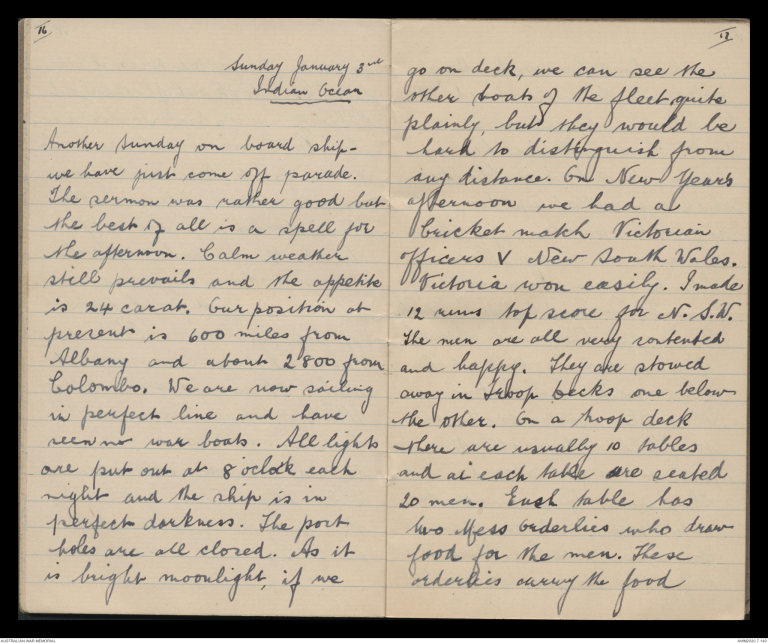 16
Sunday January 3rd
Indian Ocean
Another Sunday on board ship -
we have just come off parade.
The sermon was rather good but
the best of all is a spell for
the afternoon. Calm weather
still prevails and the appetite
is 24 carat. Our position at
present is 600 miles from
Albany and about 2800 from
Colombo. We are now sailing
in perfect line and have
seen no war boats. All lights
are put out at 8 o'clock each
night and the ship is in
perfect darkness. The port
holes are all closed. As it
is bright moonlight, if we
go on deck, we can see the
other boats of the fleet quite
plainly, but they would be
hard to distinguish from
any distance. On New Year's
afternoon we had a
cricket match Victorian
officers V New South Wales.
Victoria won easily. I made
12 runs top score for N.S.W.
The men are all very contented
and happy. They are stowed
away in Troop Decks one below
the other. On a troop deck
there are usually 10 tables
and at each table are seated
20 men. Each table has
two Mess Orderlies who draw
food for the men. These
orderlies carry the food
AUSTRALIAN WAR MEMORIAL